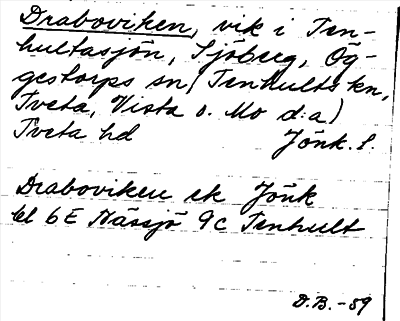 Draboviken, vik i Ten-
hultasjön, Sjöberg, Ög-
gestorps sn (Tenhults kn,
Tveta, Vista o. Mo d:a)
Tveta hd Jönk. l.
Draboviken ek Jönk
bl 6E Nässjö 9c Tenhult
D.B.-59